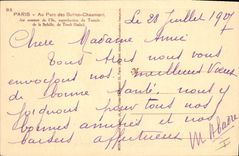 PARIS - Au Parc des Buttes-Chaumont.
Au sommet de l'île, reproduction du Temple
de la Sybille, de Tivoli (Italie).
Le 20 Juillet 1907
Chère Madame Amie
Tous trois nous vous
envoyons nos meilleurs Vœux
de bonne santé, nous y
joignons pour tous nos
bonnes amitiés et nos
baisers affectueux